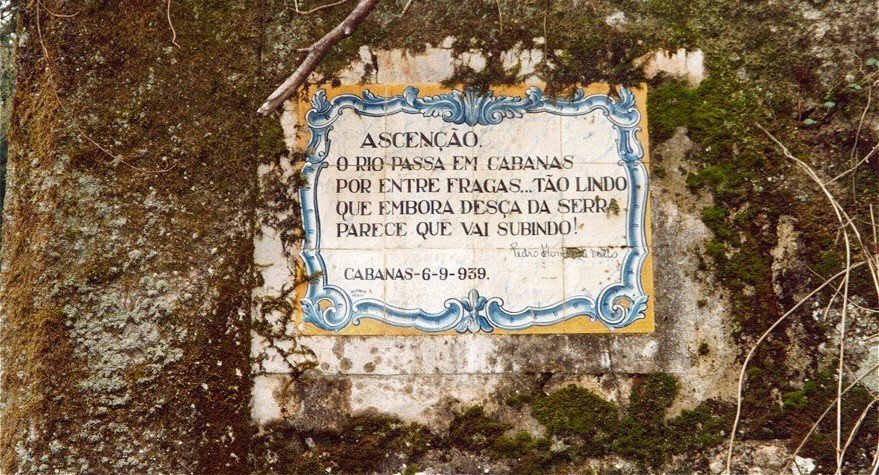 ASCENÇÃO.
O RIO PASSA EM CABANAS
POR ENTRE FRAGAS...TÃO LINDO
QUE EMBORA DESÇA DA SERRA
PARECE QUE VAI SUBINDO!
Pedro Homem de Mello
CABANAS-6-9-939.